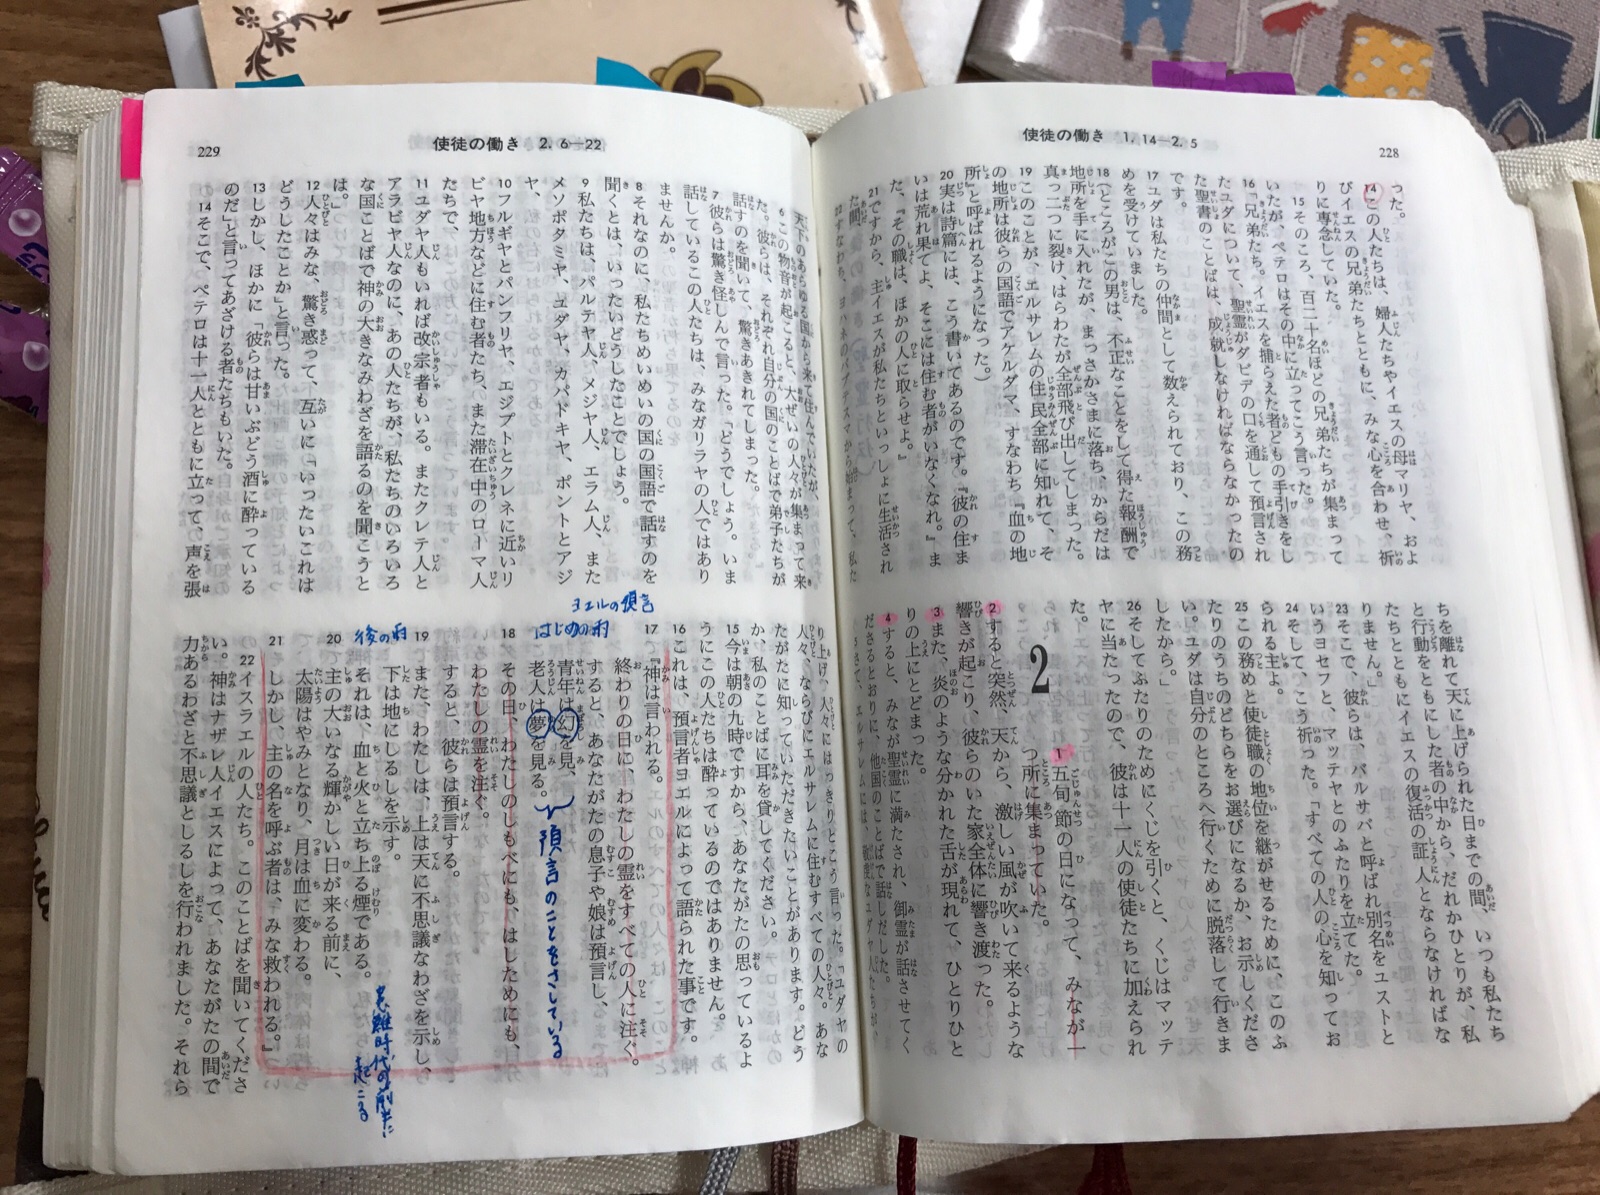 使徒の働き 1.14―2.5
228
った。
14この人たちは、婦人たちやイエスの母マリヤ、およ
びイエスの兄弟たちとともに、みな心を合わせ、祈
りに専念していた。
15そのころ、百二十名ほどの兄弟たちが集まって
いたが、ペテロはその中に立ってこう言った。
16「兄弟たち。イエスを捕らえた者どもの手引きをし
たユダについて、聖霊がダビデの口を通して預言され
た聖書のことばは、成就しなければならなかったの
です。
17ユダは私たちの仲間として数えられており、この務
めを受けていました。
18(ところがこの男は、不正なことをして得た報酬で
地所を手に入れたが、まっさかさまに落ち、からだは
真っ二つに裂け、はらわたが全部飛び出してしまった。
19このことが、エルサレムの住民全部に知れて、そ
の地所は彼らの国語でアケルダマ、すなわち『血の地
所』と呼ばれるようになった。)
20実は詩篇には、こう書いてあるのです。『彼の住ま
いは荒れ果てよ、そこには住む者がいなくなれ。』ま
た、『その職は、ほかの人に取らせよ。』
21ですから、主イエスが私たちといっしょに生活され
た間、
22すなわち、ヨハネのバプテスマから始まって、私た
ちを離れて天に上げられた日までの間、いつも私たち
と行動をともにした者の中から、だれかひとりが、私
たちとともにイエスの復活の証人とならなければな
りません。」
23そこで、彼らは、バルサバと呼ばれ別名をユストと
いうヨセフと、マッテヤとのふたりを立てた。
24そして、こう祈った。「すべての人の心を知ってお
られる主よ。
25この務めと使徒職の地位を継がせるために、このふ
たりのうちのどちらをお選びになるか、お示しくださ
い。ユダは自分のところへ行くために脱落して行きま
したから。」
26そしてふたりのためにくじを引くと、くじはマッテ
ヤに当たったので、彼は十一人の使徒たちに加えられ
た。
2
1五旬節の日になって、みなが一
つ所に集まっていた。
2すると突然、天から、激しい風が吹いて来るような
響きが起こり、彼らのいた家全体に響き渡った。
3また、炎のような分かれた舌が現れて、ひとりひと
りの上にとどまった。
4すると、みなが聖霊に満たされ、御霊が話させてく
ださるとおりに、他国のことばで話しだした。
使徒の働き 2.6―22
229
天下のあらゆる国から来て住んでいたが、
6この物音が起こると、大ぜいの人々が集まって来
た。彼らは、それぞれ自分の国のことばで弟子たちが
話すのを聞いて、驚きあきれてしまった。
7彼らは驚き怪しんで言った。「どうでしょう。いま
話しているこの人たちは、みなガリラヤの人ではあり
ませんか。
8それなのに、私たちめいめいの国の国語で話すのを
聞くとは、いったいどうしたことでしょう。
9私たちは、パルテヤ人、メジヤ人、エラム人、また
メソポタミヤ、ユダヤ、カパドキヤ、ポントとアジ
ヤ、
10フルギヤとパンフリヤ、エジプトとクレネに近いリ
ビヤ地方などに住む者たち、また滞在中のローマ人
たちで、
11ユダヤ人もいれば改宗者もいる。またクレテ人と
アラビヤ人なのに、あの人たちが、私たちのいろいろ
な国ことばで神の大きなみわざを語るのを聞こうと
は。」
12人々はみな、驚き惑って、互いに「いったいこれは
どうしたことか」と言った。
13しかし、ほかに「彼らは甘いぶどう酒に酔っている
のだ」と言ってあざける者たちもいた。
14そこで、ペテロは十一人とともに立って、声を張
り上げ、人々にはっきりとこう言った。「ユダヤの
人々、ならびにエルサレムに住むすべての人々。あな
たがたに知っていただきたいことがあります。どう
か、私のことばに耳を貸してください。
15今は朝の九時ですから、あなたがたの思っているよ
うにこの人たちは酔っているのではありません。
16これは、預言者ヨエルによって語られた事です。
ヨエルの預言
17『神は言われる。
終わりの日に、わたしの霊をすべての人に注ぐ。
すると、あなたがたの息子や娘は預言し、
はじめの雨
青年は幻を見、
老人は夢を見る。
預言のことをさしている
18その日、わたしのしもべにも、はしためにも、
わたしの霊を注ぐ。
すると、彼らは預言する。
19また、わたしは、上は天に不思議なわざを示し、
下は地にしるしを示す。
それは、血と火と立ち上る煙である。
後の雨
20主の大いなる輝かしい日が来る前に、
太陽はやみとなり、月は血に変わる。
患難時代の前半に
起こる
21しかし、主の名を呼ぶ者は、みな救われる。』
22イスラエルの人たち。このことばを聞いてくださ
い。神はナザレ人イエスによって、あなたがたの間で
力あるわざと不思議としるしを行われました。それら